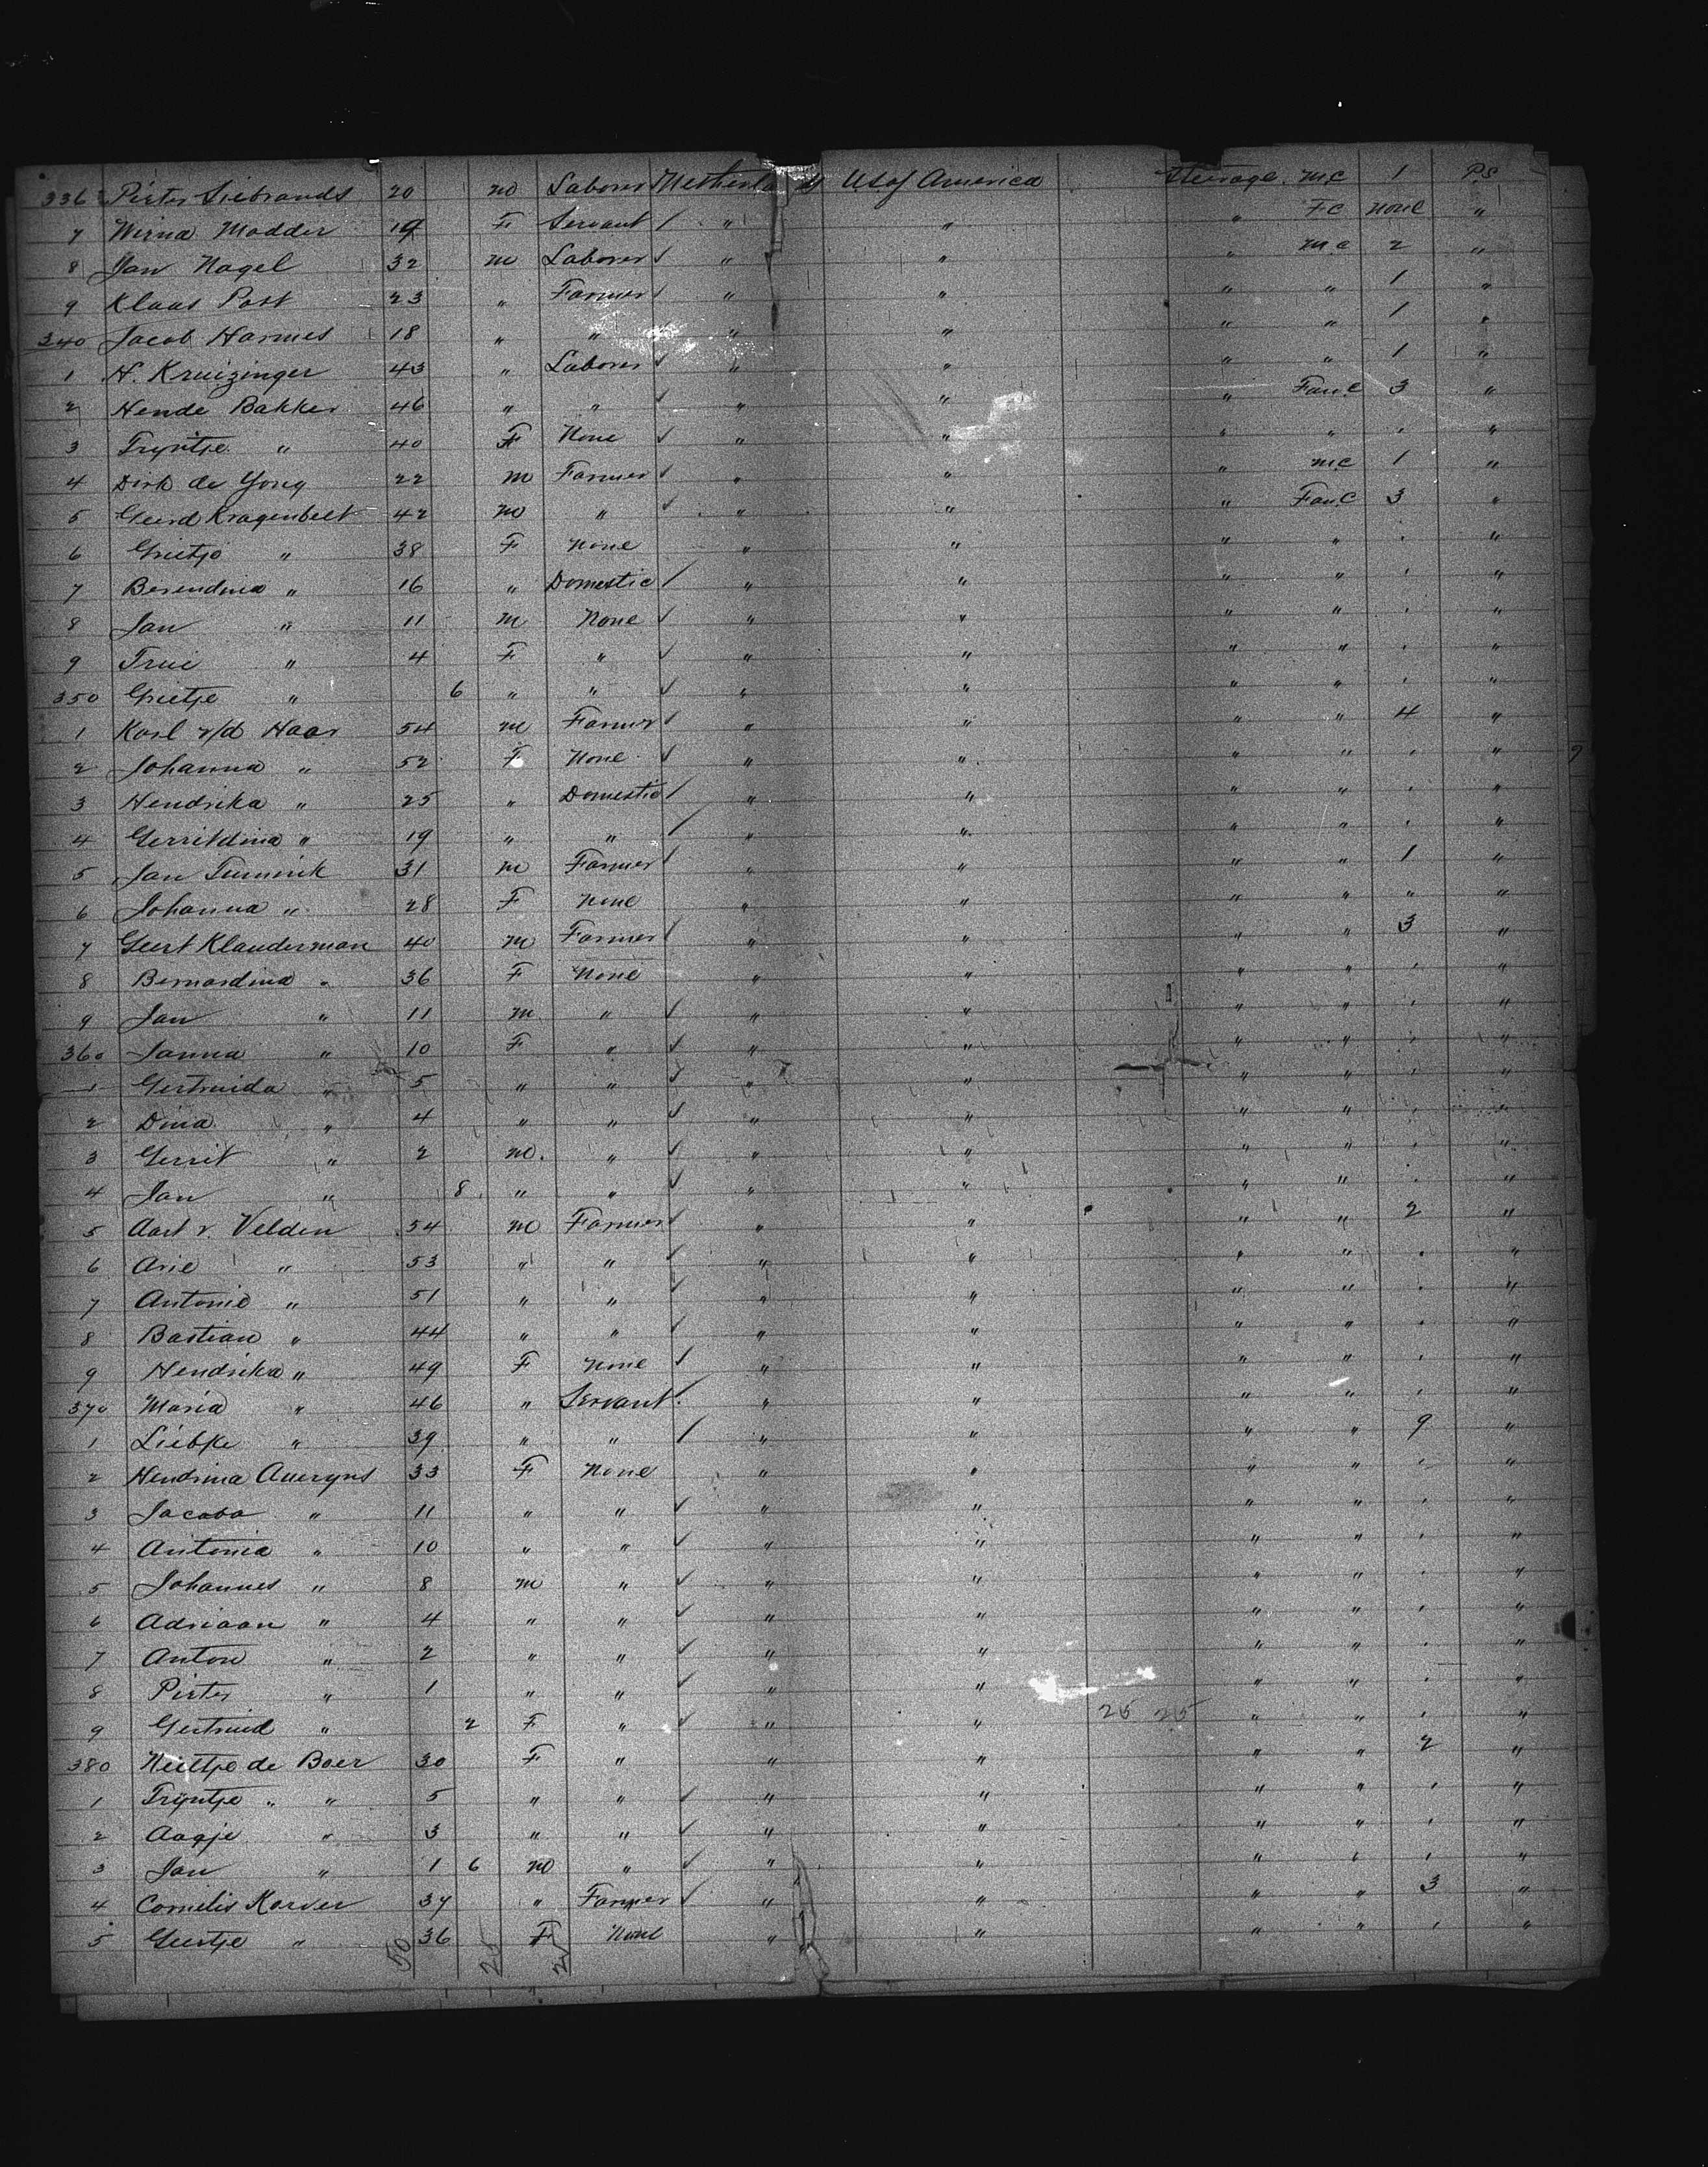 336 Pieter Siebrands 20 m Laborer Netherla U S of America Steerage M.C 1 P.S
7 Wirna Modder 19 F Servant / " " " F C None "
8 Jan Nagel 32 m Laborer ✓ " " " M C 2 "
9 Klaas Post 23 " Farmer ✓ " " " " 1 "
340 Jacob Harmes 18 " " " " " " 1 "
1 H. Kruizinger 43 " Laborer ✓ " " " " 1 "
2 Hende Bakker 46 " " ✓ " " " Fam.C 3 "
3 Tryntje " 40 F None ✓ " " " " " "
4 Dirk de Yong 22 m Farmer ✓ " " " M.C 1 "
5 Geerd Kragenbelt 42 m " ✓ " " " Fam.C 3 "
6 Grietje " 38 F None " " " " " "
7 Berendina " 16 " Domestic / " " " " " "
8 Jan " 11 m None ✓ " " " " " "
9 Trui " 4 F " ✓ " " " " " "
350 Grietje " 6 " " ✓ " " " " " "
1 Karl v/d Haar 54 m Farmer ✓ " " " " 4 "
2 Johanna " 52 F None ✓ " " " " " "
3 Hendrika " 25 " Domestic / " " " " " "
4 Gerritdina " 19 " " / " " " " " "
5 Jan 31 m Farmer ✓ " " " " 1 "
6 Johanna " 28 F None " " " " " "
7 Geert Klauderman 40 m Farmer ✓ " " " " 3 "
8 Bernardina " 36 F None " " " " " "
9 Jan " 11 m " ✓ " " " " " "
360 Janna " 10 F " ✓ " " " " " "
1 Gertruida " 5 " " ✓ " " " " " "
2 Dina " 4 " " ✓ " " " " " "
3 Gerrit " 2 m " ✓ " " " " " "
4 Jan " 8 " " ✓ " " " " " "
5 Aart v. Velden 54 m Farmer ✓ " " " " 2 "
6 Arie " 53 " " ✓ " " " " " "
7 Antonie " 51 " " ✓ " " " " " "
8 Bastian " 44 " " ✓ " " " " " "
9 Hendrika " 49 F None ✓ " " " " " "
370 Maria " 46 " Servant / " " " " " "
1 Liebke " 39 " " / " " " " 9 "
2 Hendrina 33 F None " " " " " "
3 Jacoba " 11 " " ✓ " " " " " "
4 Antonia " 10 " " ✓ " " " " " "
5 Johannes " 8 m " ✓ " " " " " "
6 Adriaan " 4 " " ✓ " " " " " "
7 Anton " 2 " " ✓ " " " " " "
8 Pieter " 1 " " ✓ " " " " " "
9 Gertruid " 2 F " ✓ " " 25 25 " " " "
380 Neeltje de Boer 30 F " " " " " 2 "
1 Tryntje " " 5 " " ✓ " " " " " "
2 Aagje " 3 " " ✓ " " " " " "
3 Jan " 1 6 m " ✓ " " " " " "
4 Cornelis Karver 37 " Farmer ✓ " " " " 3 "
5 Geertje " 36 F None " " " " " "
50 25 25